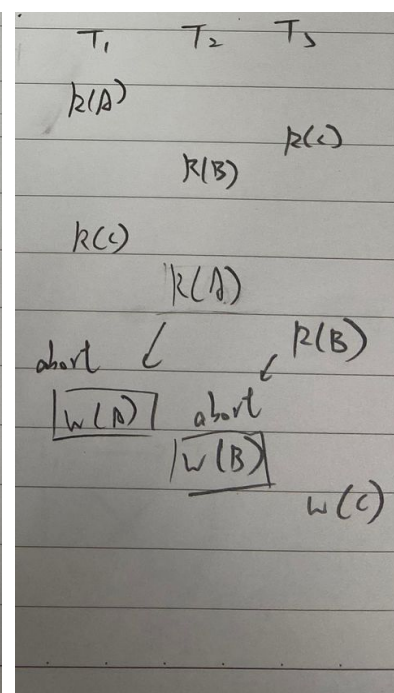 T₁ T₂ T₃
R(A)
R(C)
R(B)
R(C)
R(A)
R(B)
abort
W(A) abort
W(B)
W(C)